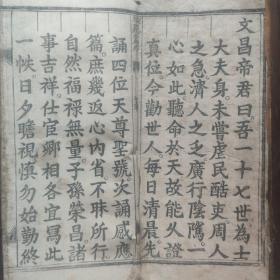 文昌帝君曰吾一十七世為士
大夫身未嘗虐民酷吏周人
之急濟人之乏廣行陰隲一
心如此聽命於天故能久證
真位今勸世人每日清晨先
誦四位天尊聖號次誦感應
篇庶幾返心內省不昧所行
自然福祿無量子孫榮昌諸
事吉祥仕宦卿相各宜寫此
一帙日夕瞻視慎勿始勤終